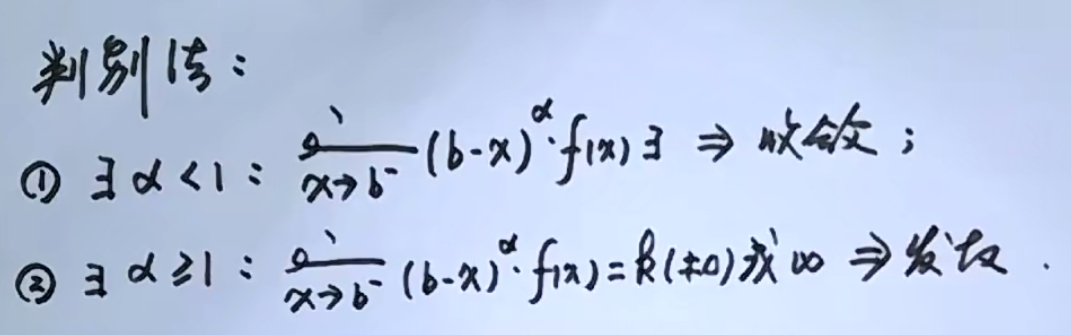 判别法：
① ∃ α<1： lim x→b⁻ (b-x)^α·f(x) ∃ ⇒ 收敛；
② ∃ α≥1： lim x→b⁻ (b-x)^α·f(x)=k(≠0)或∞ ⇒ 发散.